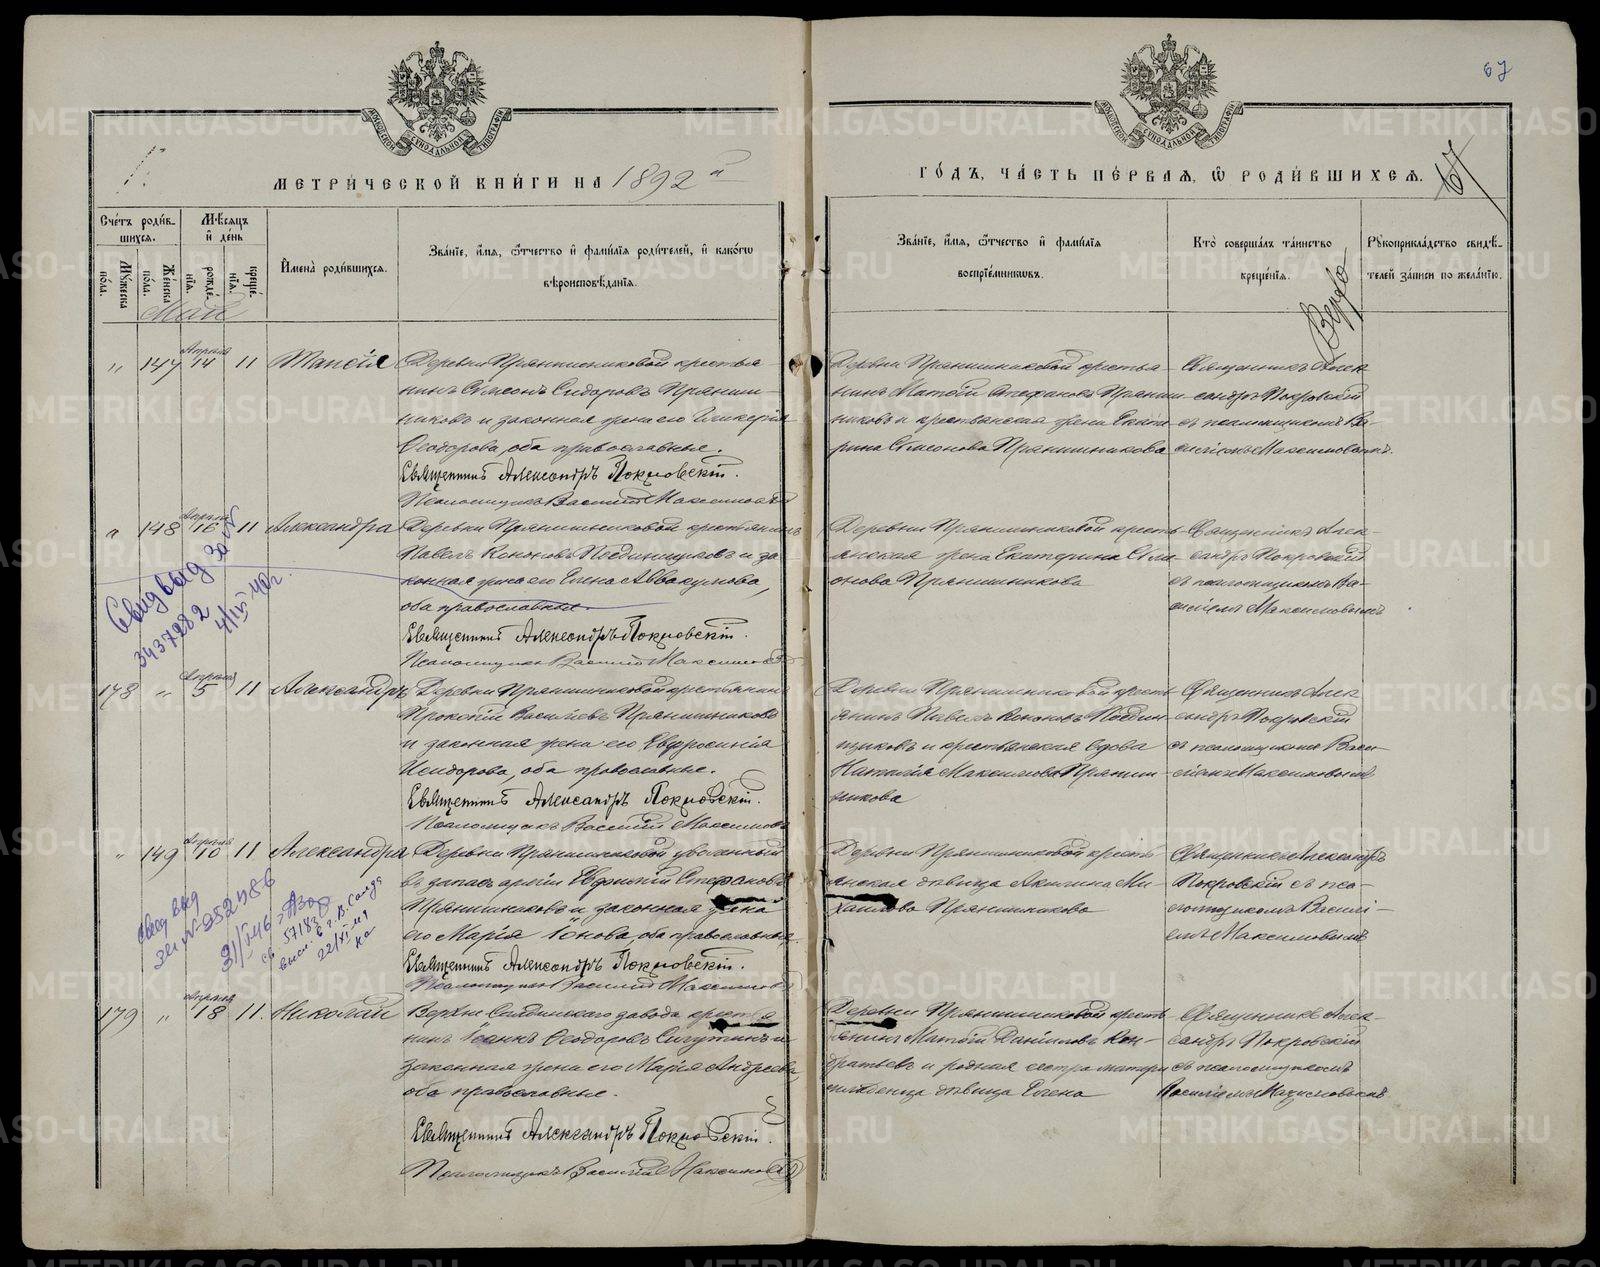 67
МЕТРИ́ЧЕСКОЙ КНИ́ГИ НА 1892 й
ГО́ДЪ, ЧА́СТЬ ПЕ́РВАЯ, Ѡ РОДИ́ВШИХСЯ. 67
Сче́тъ роди́в-
шихся.
Мꙋ́жеска по́ла.
Же́нска по́ла.
Мѣ́сяцъ
и҆ де́нь
рожде́нїя.
креще́нїя.
И҆мена̀ роди́вшихся.
Зва́нїе, и҆́мя, ѻ҆́тчество и҆ фами́лїя роди́телей, и҆ како́гѡ
вѣроисповѣ́данїя.
Зва́нїе, и҆́мя, ѻ҆́тчество и҆ фами́лїя
воспрїе́мниковъ.
Кто̀ соверша́лъ та́инство
креще́нїя.
Рꙋкоприкла́дство свидѣ́-
телей за́писи по жела́нїю.
Май
Верхо
„ 147 Апрѣля 14 11 Таисія
Деревни Прянишниковой крестья
нинъ Сѵмеонъ Сидоровъ Пряниш-
никовъ и законная жена его Гликерія
Ѳеодорова, оба православные.
Священникъ Александръ Покровскій.
Псаломщикъ Василій Максимовъ
Деревни Прянишниковой крестья-
нинъ Матѳій Стефановъ Пряниш-
никовъ и крестьянская жена Екате
рина Сѵмеонова Прянишникова
Священникъ Алек-
сандръ Покровскій
съ псаломщикомъ Ва-
силіемъ Максимовымъ.
„ 148 Апрѣля 16 11 Александра
Деревни Прянишниковой крестьянинъ
Павелъ Кононовъ Поединщиковъ и за
конная жена его Елена Аввакумова,
оба православные.
Священникъ Александръ Покровскій.
Псаломщикъ Василій Максимовъ
Деревни Прянишниковой кресть-
янская жена Екатерина Сѵме
онова Прянишникова
Священникъ Алек-
сандръ Покровскій
съ псаломщикомъ Ва-
силіемъ Максимовымъ
Свид выд За №
3437282
4/IV 40 г.
178 „ Апрѣля 5 11 Александръ
Деревни Прянишниковой крестьянинъ
Прокопій Васильевъ Прянишниковъ
и законная жена его Евфросинія
Исидорова, оба православные.
Священникъ Александръ Покровскій.
Псаломщикъ Василій Максимовъ
Деревни Прянишниковой кресть
янинъ Павелъ Кононовъ Поедин-
щиковъ и крестьянская вдова
Наталія Максимова Пряниш-
никова
Священникъ Алек
сандръ Покровскій
съ псаломщикомъ Васи-
ліемъ Максимовымъ
„ 149 Апрѣля 10 11 Александра
Деревни Прянишниковой уволенный
въ запасъ арміи Евфимій Стефановъ
Прянишниковъ и законная жена
его Марія Іонова, оба православные.
Священникъ Александръ Покровскій.
Псаломщикъ Василій Максимовъ
Деревни Прянишниковой кресть
янская дѣвица Акилина Ми-
хаилова Прянишникова
Священникъ Александръ
Покровскій съ пса-
ломщикомъ Василі-
емъ Максимовымъ
свид выд
за № 952486
31/I 46 г.
179 „ Апрѣля 18 11. Николай
Верхне Салдинскаго завода крестья
нинъ Іоаннъ Ѳеодоровъ Сичутинъ и
законная жена его Марія Андреева,
оба православные.
Священникъ Александръ Покровскій.
Псаломщикъ Василій Максимовъ
Деревни Прянишниковой кресть
янинъ Матѳій Даніиловъ Кон-
дратьевъ и родная сестра матери
младенца дѣвица Елена
Священникъ Алек-
сандръ Покровскій
съ псаломщикомъ
Василіемъ Максимовымъ